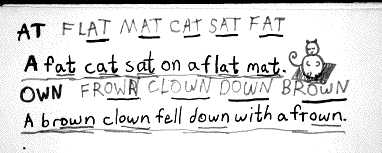 AT FLAT MAT CAT SAT FAT
A fat cat sat on a flat mat.
OWN FROWN CLOWN DOWN BROWN
A brown clown fell down with a frown.